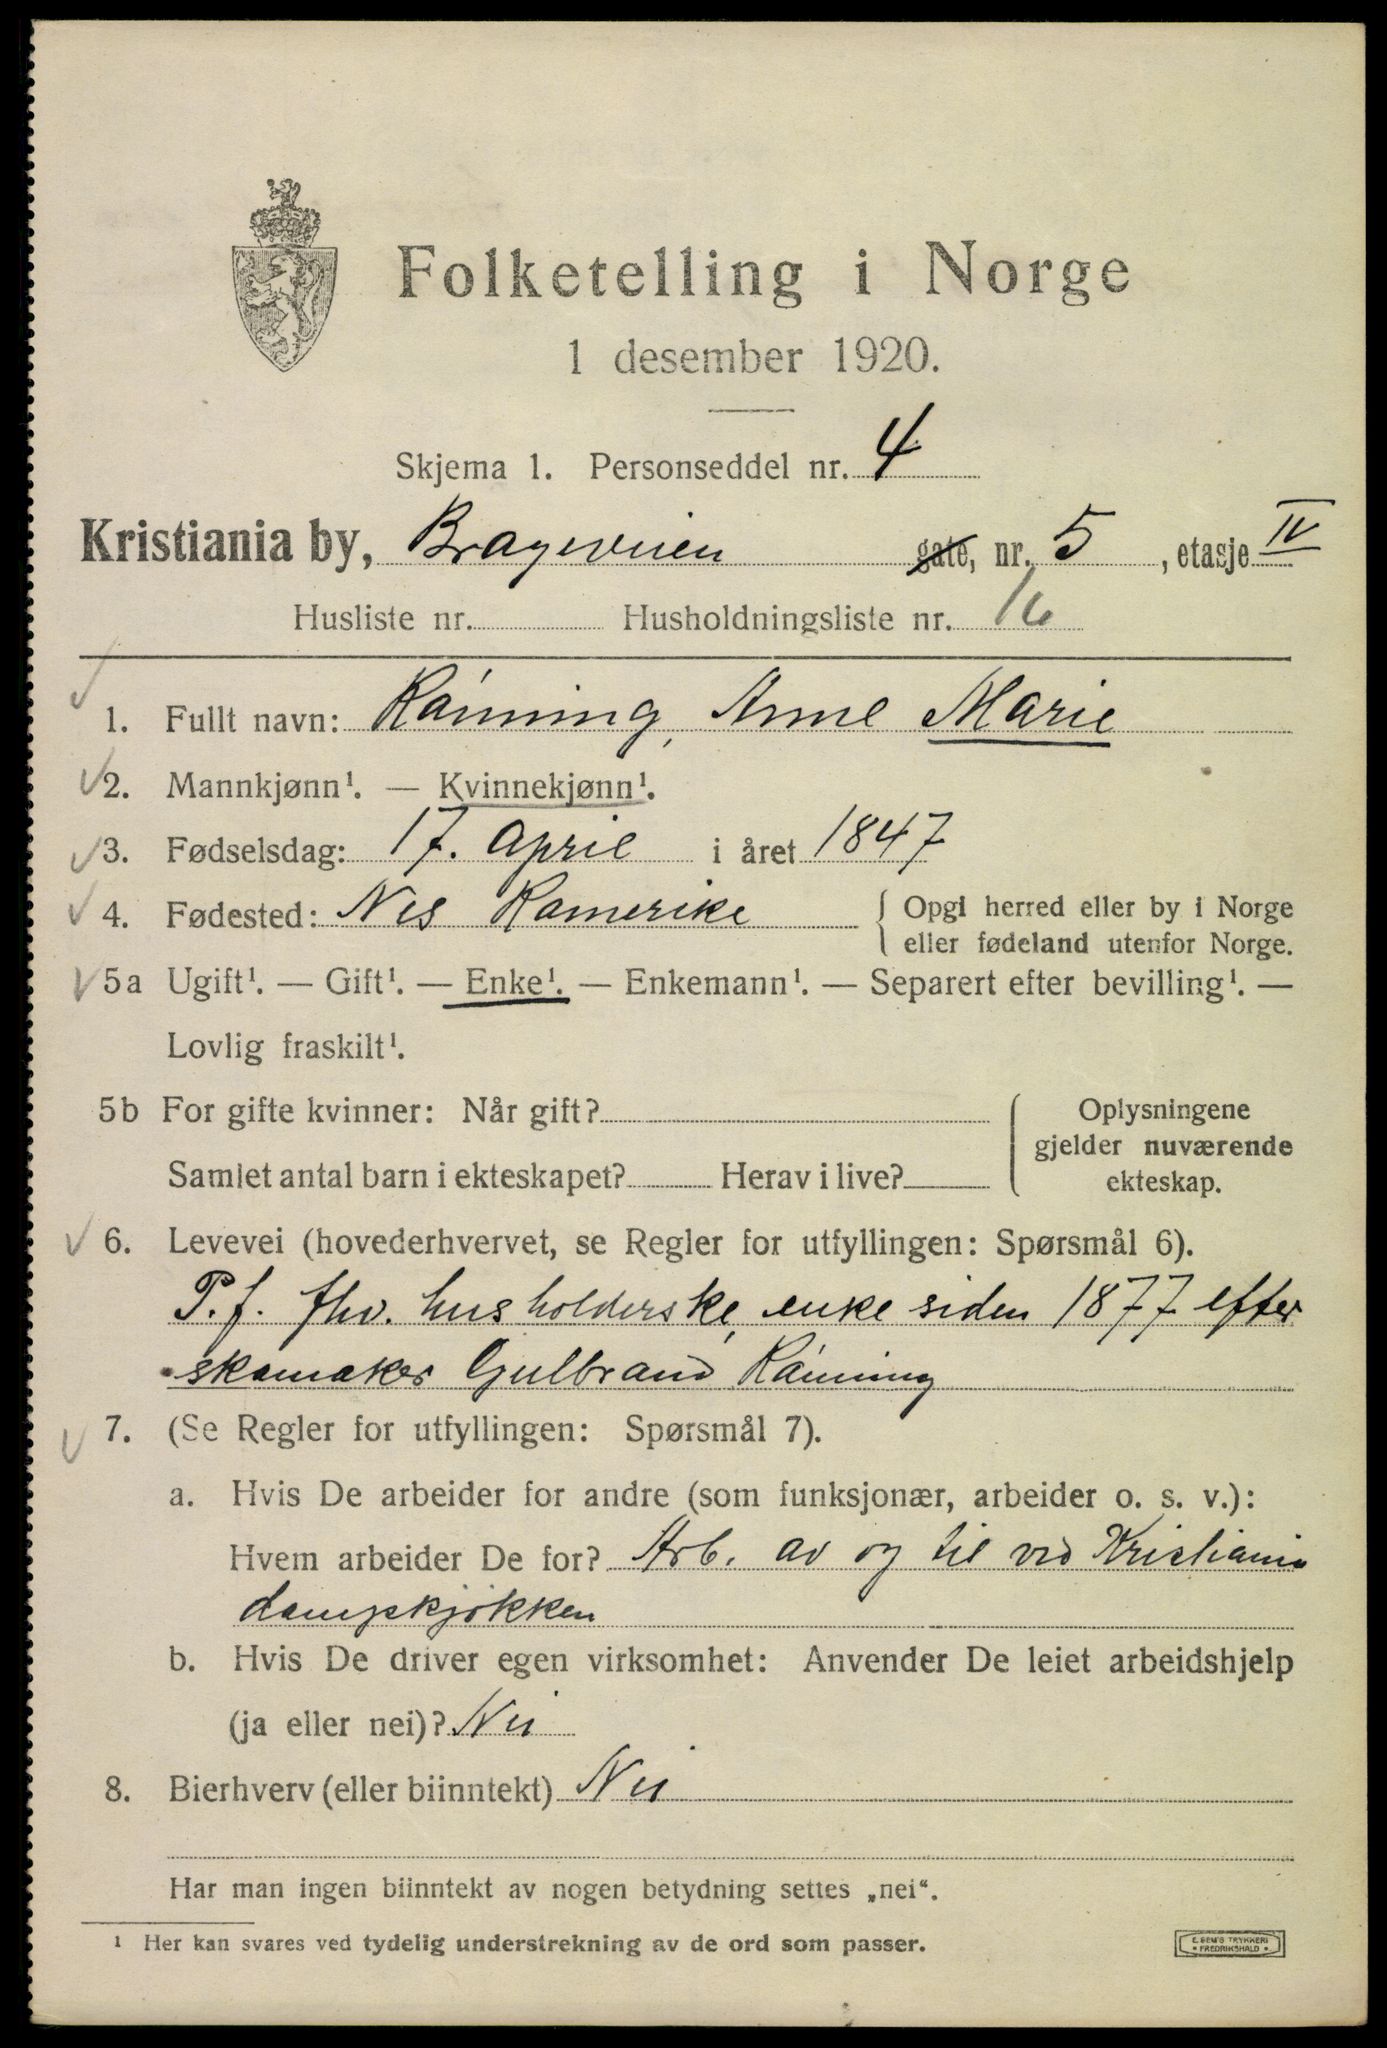 Folketelling i Norge
1 desember 1920.
Skjema 1. Personseddel nr. 4
Kristiania by, Brageveien gate, nr. 5, etasje IV
Husliste nr. Husholdningsliste nr. 16
1. Fullt navn: Rønning, Anne Marie
2. Mannkjønn¹. — Kvinnekjønn¹.
3. Fødselsdag: 17. april i året 1847
4. Fødested: Nes Romerike { Opgi herred eller by i Norge
eller fødeland utenfor Norge.
5a Ugift¹. — Gift¹. — Enke¹. — Enkemann¹. — Separert efter bevilling¹. —
Lovlig fraskilt¹.
5b For gifte kvinner: Når gift?
Samlet antal barn i ekteskapet? Herav i live?
Oplysningene
gjelder nuværende
ekteskap.
6. Levevei (hovederhvervet, se Regler for utfyllingen: Spørsmål 6).
P.f. fhv. husholderske, enke siden 1877 efter
skomaker Gulbrand Rønning
7. (Se Regler for utfyllingen: Spørsmål 7).
a. Hvis De arbeider for andre (som funksjonær, arbeider o. s. v.):
Hvem arbeider De for? Arb. av og til ved Kristiania
dampkjøkken
b. Hvis De driver egen virksomhet: Anvender De leiet arbeidshjelp
(ja eller nei)? Nei
8. Bierhverv (eller biinntekt) Nei
Har man ingen biinntekt av nogen betydning settes „nei“.
¹ Her kan svares ved tydelig understrekning av de ord som passer.
E. SEM'S TRYKKERI
• FREDRIKSHALD •